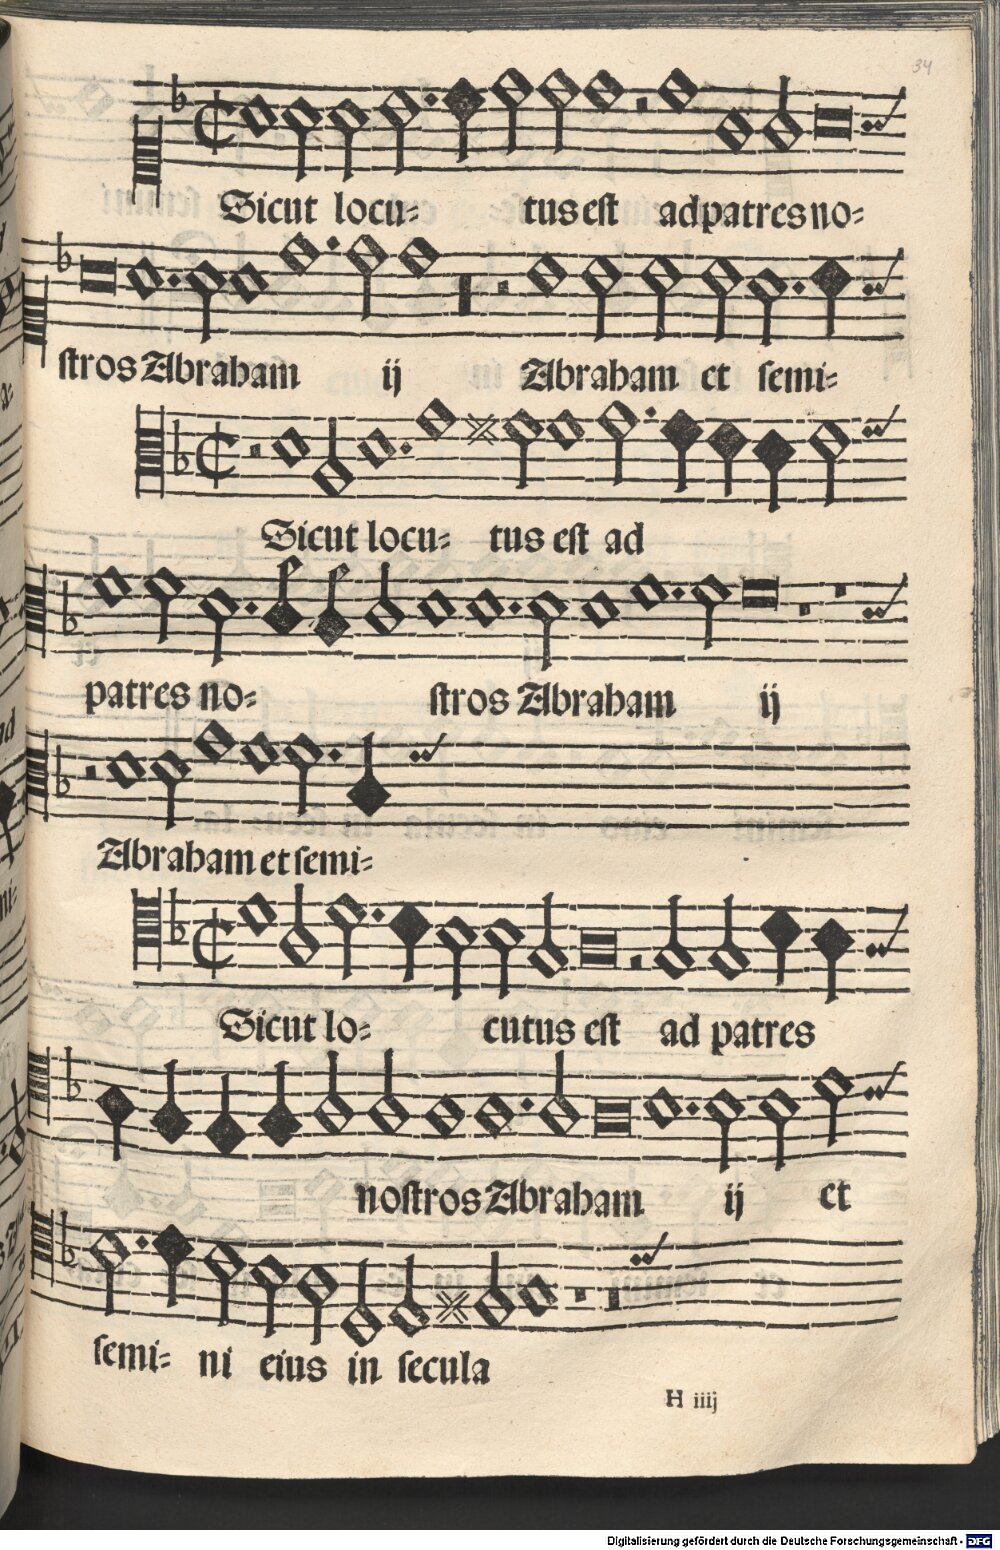 34
Sicut locu- tus est ad patres no-
stros Abraham ij Abraham et semi-
Sicut locu- tus est ad
patres no- stros Abraham ij
Abraham et semi-
Sicut lo- cutus est ad patres
nostros Abraham ij et
semi- ni eius in secula
H iiij
Digitalisierung gefördert durch die Deutsche Forschungsgemeinschaft - DFG